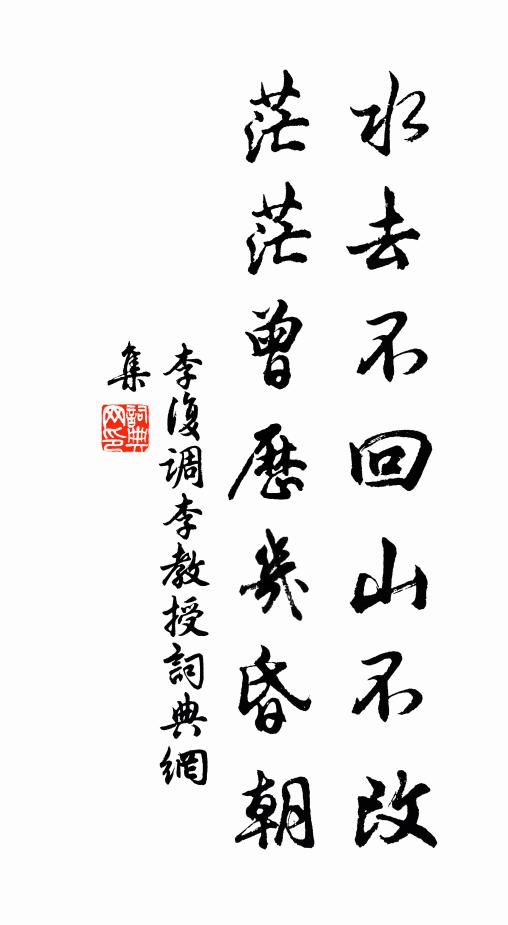 水去不回山不改
茫茫曾歷幾昏朝
李復调李教授詞典網
集
詞典网印